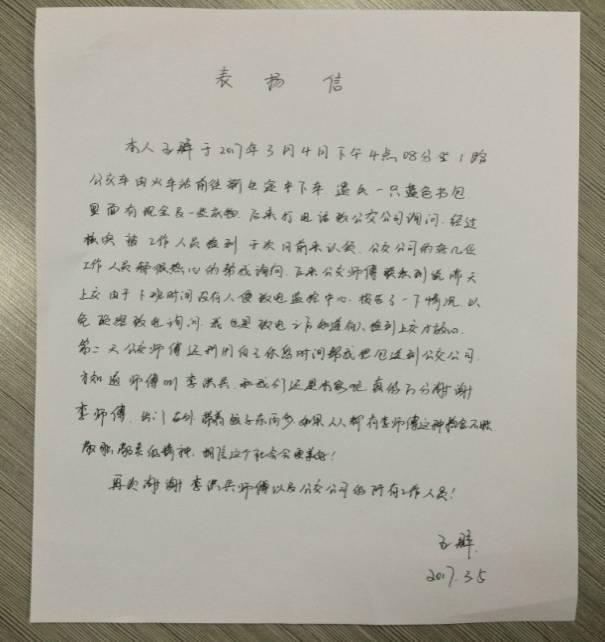 表扬信
本人 于2017年3月4日下午4点08分坐1路
公交车由火车站前往 下车,遗失一只蓝色书包
里面有现金及一些衣物,后来打电话致公交公司询问,经过
核实被工作人员捡到于次日前来认领,公交公司的好几位
工作人员都很热心的帮我询问,后来公交师傅联系到说昨天
上交由于下班时间没有人便致电监控中心,报告了一下情况,以
免 致电询问,我也是致电之后知道 捡到上交才放心
第二天公交师傅还利用自己休息时间帮我把包送到公交公司
方知道师傅叫李洪兵,和我们还是 真的万分谢谢
李师傅,出门在外带着孩子东西多如果人人都有李师傅这种拾金不昧
的精神,相信这个社会会更美好!
再次谢谢李洪兵师傅以及公交公司的所有工作人员!
2017.3.5